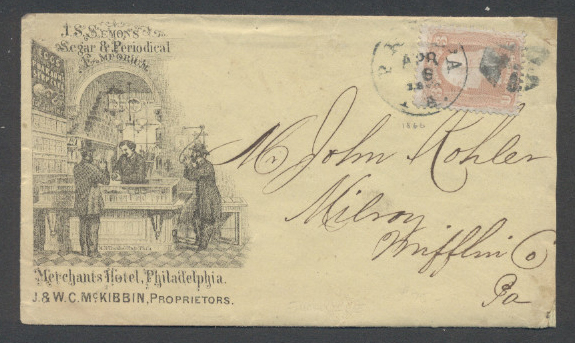 J. S. Semon's
Segar & Periodical
Emporium
Merchants Hotel, Philadelphia.
J. & W. C. McKIBBIN, PROPRIETORS.
PHILA
APR
6
PA
1866
Mr John Kohler
Milroy
Mifflin Co
Pa